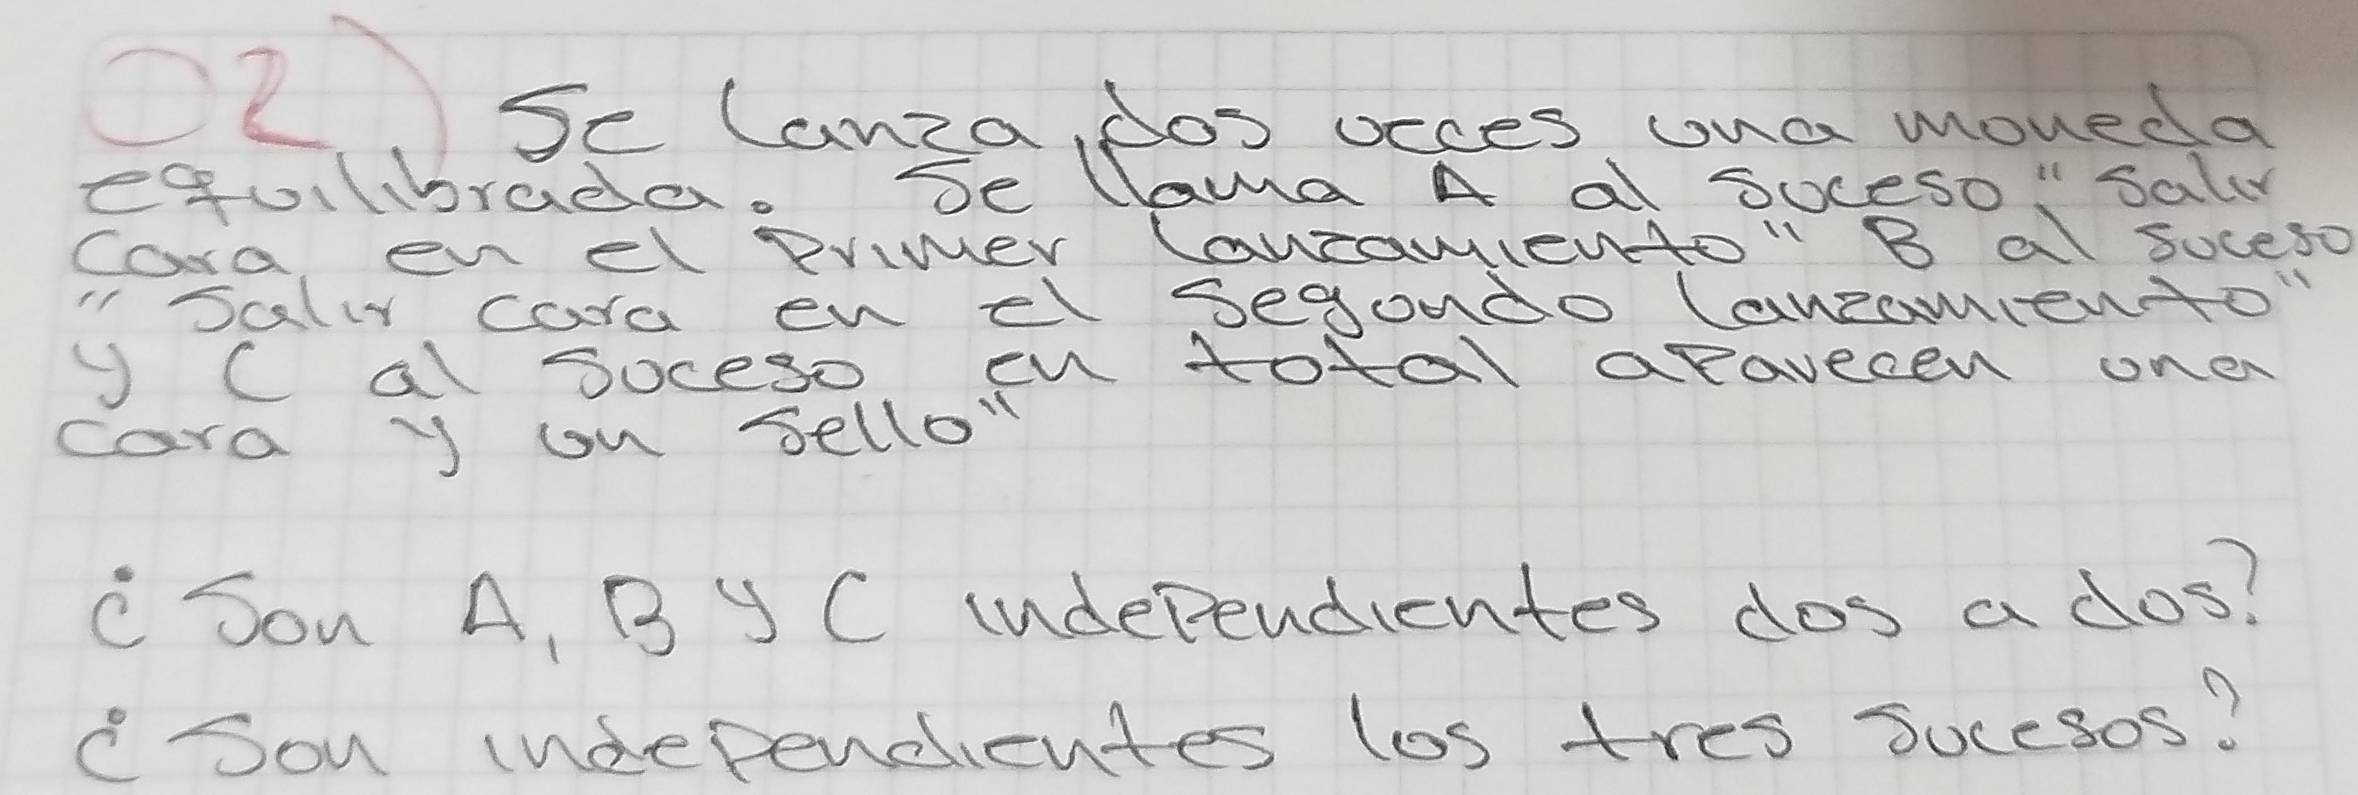 02) Se lanza, dos veces una moneda
equilibrada. Se llama A al suceso "Salir
cara, en el Primer lanzamiento" B al suceso
"Salir cara en el segundo lanzamiento"
y C al suceso en total aparecen una
cara y un sello"
¿Son A, B y C independientes dos a dos?
¿Son independientes los tres sucesos?